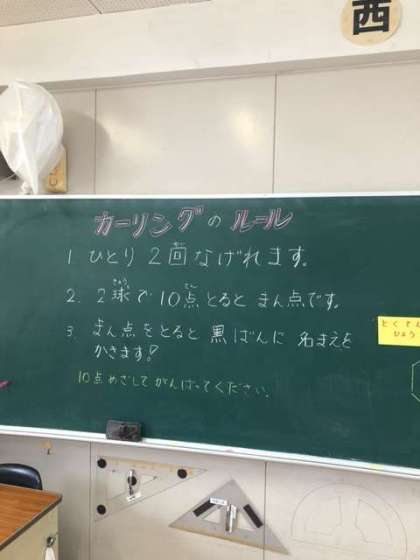 西
カーリングのルール
1. ひとり 2回なげれます。
2. 2球で10点とるとまん点です。
3. まん点をとると黒ばんに名まえを
かきます!
10点めざしてがんばってください。
とくてん
ひょう